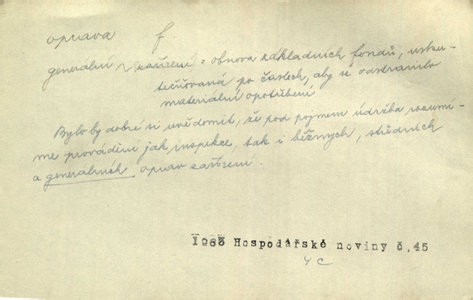 oprava f.
generální ~ zařízení = obnova základních fondů, usku-
tečňovaná po částech, aby se odstranilo
materiální opotřebení
Bylo by dobré si uvědomit, že pod pojmem údržba rozumí-
me provádění jak inspekce, tak i běžných, středních
a generálních oprav zařízení.
1963 Hospodářské noviny č.45